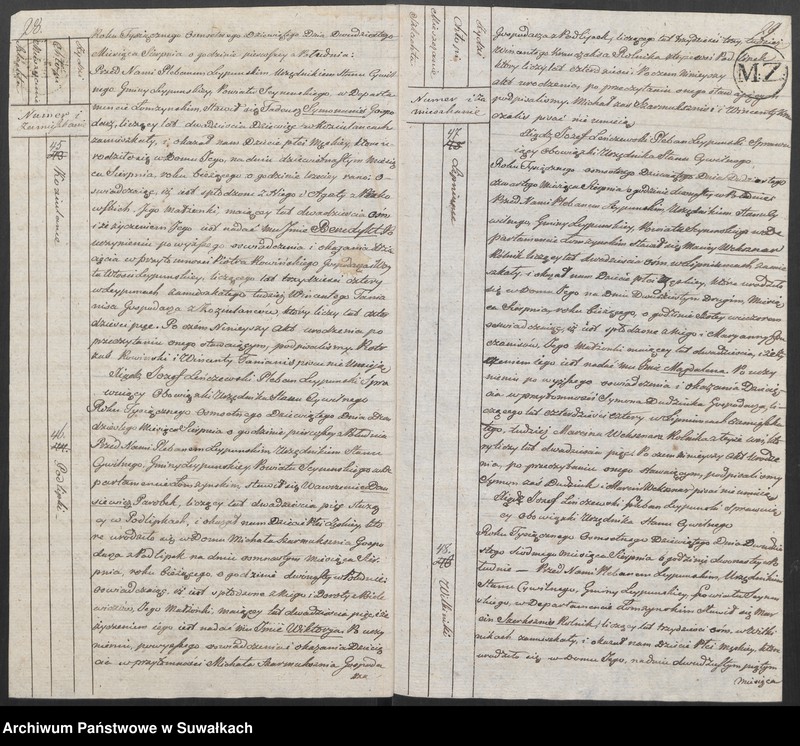 28.
Szlachta
Mieszczanie
Chłopi
Żydzi
Numer i
Zamieszkanie
Roku Tysiącznego Osmsetnego Dziewiątego Dnia Dwudziestego
Miesiąca Sierpnia o godzinie pierwszej z Południa:
Przed Nami Plebanem Leypunskim Urzędnikiem Stanu Cywil
nego Gminy Leypunskiey Powiatu Seynenskiego, w Departa
mencie Łomzynskim, Stawił się Tadeusz Symonaniec Gospo
darz, liczący lat dwadzieścia Dziewięć w Kozientancach
zamieszkały, i okazał nam Dziecie płci Męskiey, które u
rodziło się w Domu Jego, na dniu dziewiętnastym Miesią
ca Sierpnia, roku bieżącego o godzinie trzeciey rano; O
świadczaiąc, iż jest spłodzone z Niego i Agaty z
Jego Małżonki maiącey lat dwadzieścia Osm
i że życzeniem Jego jest nadać mu Jmie Benedykt. Po
uczynieniu powyższego oswiadczenia i okazania Dzie
cięcia w przytomności Piotra Kowinskiego Gospodarza
Leypunskiey, liczącego lat trzydzieści cztery
w Leypunach zamieszkałego tudzież Wincentego Tania
nisa Gospodarza z Kozientancow, który liczy lat czter
dzieści pięć. Po czem Ninieyszy Akt urodzenia po
przeczytaniu onego stawaiącym, podpisaliśmy. Piotr
zaś Kowinski i Wincenty Tanianis pisać nie umieią
Xiądz Jozef Lenczewski Pleban Leypunski Spra
wuiący Obowiązki Urzędnika Stanu Cywilnego
45
Kozientance
Roku Tysiącznego Osmsetnego Dziewiątego Dnia Dwu
dziestego Miesiąca Sierpnia o godzinie pierwszey z Południa
Przed Nami Plebanem Leypunskim Urzędnikiem Stanu
Cywilnego, Gminy Leypunskiey Powiatu Seynenskiego w De
partamencie Łomzynskim, stawił się Wawrzeniec Dan
Parobek, liczący lat dwadzieścia pięć Służą
cy w Podlipkach, i okazał nam Dziecie Płci Żeńskiey, któ
re urodziło się w Domu Michała Skarmuksznia Gospo
darza z Podlipek na dniu osmnastym miesiąca Sier
pnia, roku bieżącego, o godzinie dwunastey w Południe
oswiadczaiąc, iż jest spłodzone z Niego i Doroty
Jego Małżonki, maiącey lat dwadzieścia pięć i że
życzeniem jego jest nadać mu Jmie Wiktorya. Po uczy
nieniu, powyższego oswiadczenia i okazania Dziecię
cia w przytomności Michała Skarmuksznia Gospoda
rza
46.
Podlipki
Szlachta
Mieszczanie
Chłopi
Żydzi
Numer i Za
mieszkanie
29.
MZ
Gospodarza z Podlipek, liczącego lat trzydzieści trzy, tudzież
Wincentego Rolnika Podlipek
który liczy lat czterdzieści. Po czem Ninieyszy
akt urodzenia, po przeczytaniu onego stawaiącym
podpisaliśmy. Michał zaś Skarmuksznis i Wincenty
pisać nie umieią
Xiądz Jozef Lenczewski Pleban Leypunski Sprawu
iący Obowiązki Urzędnika Stanu Cywilnego.
47.
Roku Tysiącznego Osmsetnego Dziewiątego Dnia Dwudziestego
czwartego Miesiąca Sierpnia o godzinie dwunastey w Południe
Przed Nami Plebanem Leypunskim, Urzędnikiem Stanu Cy
wilnego, Gminy Leypunskiey, Powiatu Seynenskiego w De
partamencie Łomzynskim stawił się Maciey Weksznar
Rolnik liczący lat dwadzieścia osm, w zamie
szkały, i okazał nam Dziecie płci Żeńskiey, które urodziło
się w Domu Jego na Dniu Dwudziestym Drugim, Miesią
ca Sierpnia, roku bieżącego, o godzinie szóstey wieczorem
oswiadczaiąc, iż jest spłodzone z Niego i Maryanny
Jego Małżonki maiącey lat dwadzieścia, i że ży
czeniem Jego jest nadać mu Jmie Magdalena. Po uczy
nieniu powyższego oswiadczenia i okazania Dziecię
cia w przytomności Symona Dudzinka Gospodarza, li
czącego lat czterdzieści cztery w zamieszka
łego, tudzież Marcina Weksznar Rolnika z teyże wsi, któ
ry liczy lat dwadzieścia pięć. Po czem ninieyszy Akt Urodze
nia, po przeczytaniu onego stawaiącym, podpisaliśmy
Symon zaś Dudzink i Marcin Wekszna pisać nie umieią
Xiądz Jozef Lenczewski Pleban Leypunski Sprawuią
cy Obowiązki Urzędnika Stanu Cywilnego
48.
Roku Tysiącznego Osmsetnego Dziewiątego Dnia Dwudzie
stego Siodmego miesiąca Sierpnia o godzinie dwunastey w Po
łudnie — Przed Nami Plebanem Leypunskim, Urzędnikiem
Stanu Cywilnego, Gminy Leypunskiey, powiatu Seynen
skiego, w Departamencie Łomzynskim Stawił się Mar
cin Rolnik, liczący lat trzydzieści osm, w
zamieszkały, i okazał nam Dziecie Płci Męskiey, które
urodziło się w Domu Jego, na dniu dwudziestym piątym
miesiąca
Archiwum Państwowe w Suwałkach